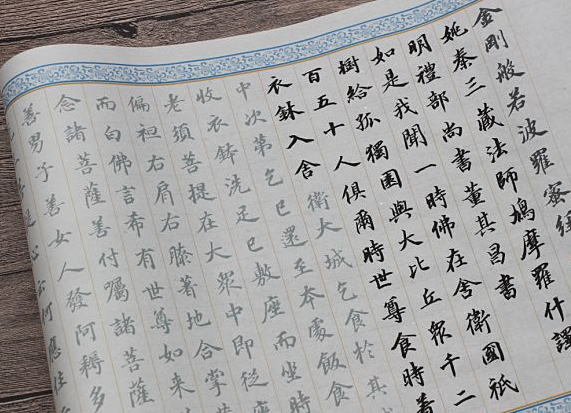 金剛般若波羅蜜經
姚秦三藏法師鳩摩羅什譯
明禮部尚書董其昌書
如是我聞一時佛在舍衛國祇
樹給孤獨園與大比丘眾千二
百五十人俱爾時世尊食時著
衣鉢入舍衛大城乞食於其
中次第乞已還至本處飯食
收衣鉢洗足已敷座而坐時
老須菩提在大眾中即從座
偏袒右肩右膝著地合掌
而白佛言希有世尊如來
念諸菩薩善付囑諸菩薩
善男子善女人發阿耨多
心云何應住